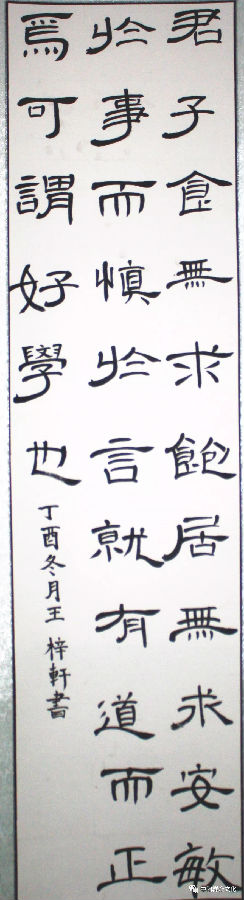 君子食無求飽居無求安敏
於事而慎於言就有道而正
焉可謂好學也
丁酉冬月王梓軒書